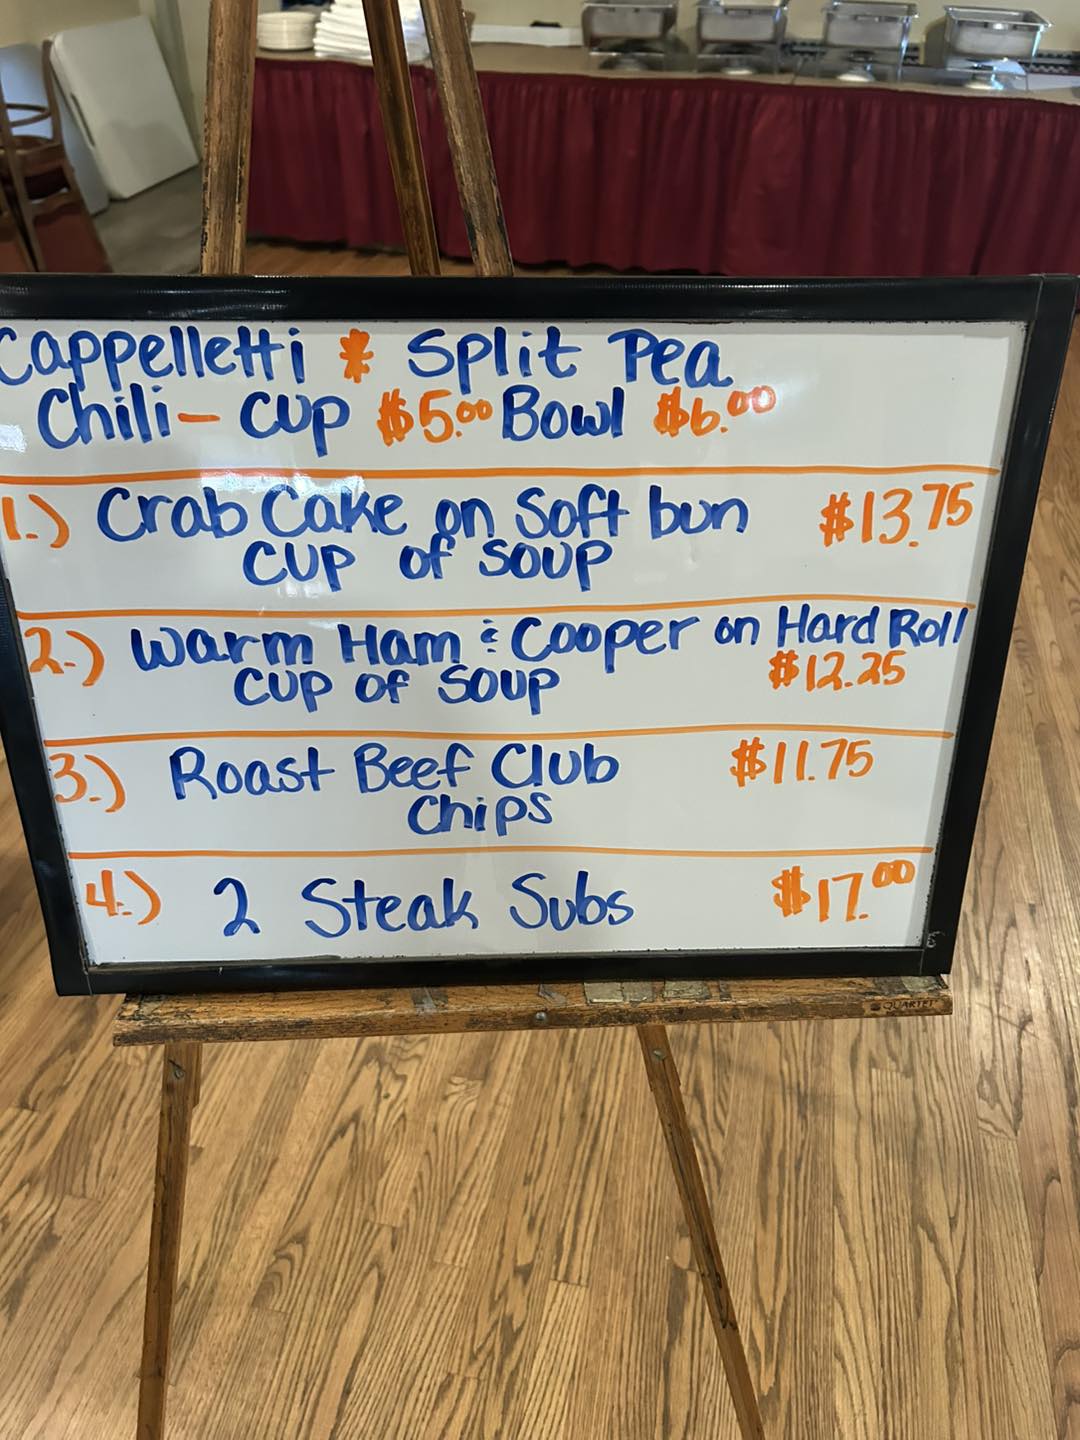 Cappelletti * Split Pea
Chili - Cup $5.00 Bowl $6.00
1.) Crab Cake on Soft bun $13.75
Cup of Soup
2.) Warm Ham & Cooper on Hard Roll
Cup of Soup $12.25
3.) Roast Beef Club $11.75
Chips
4.) 2 Steak Subs $17.00
QUARTET